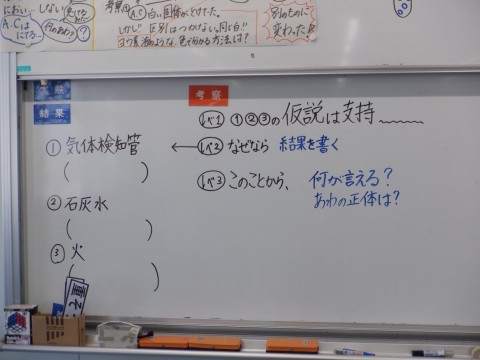 におい
しない
A.Cは
にてる…
A.C 白い固体がとけてた。
しかし 区別はつかない。同じ白!!
ヨウ素液のような、色で分かる方法は?
別のものに
変わった
実験
結果
①気体検知管
( )
②石灰水
( )
③火
( )
考察
レベ1 ①②③の仮説は支持~~~
←レベ2 なぜなら 結果を書く
レベ3 このことから、 何が言える?
あわの正体は?